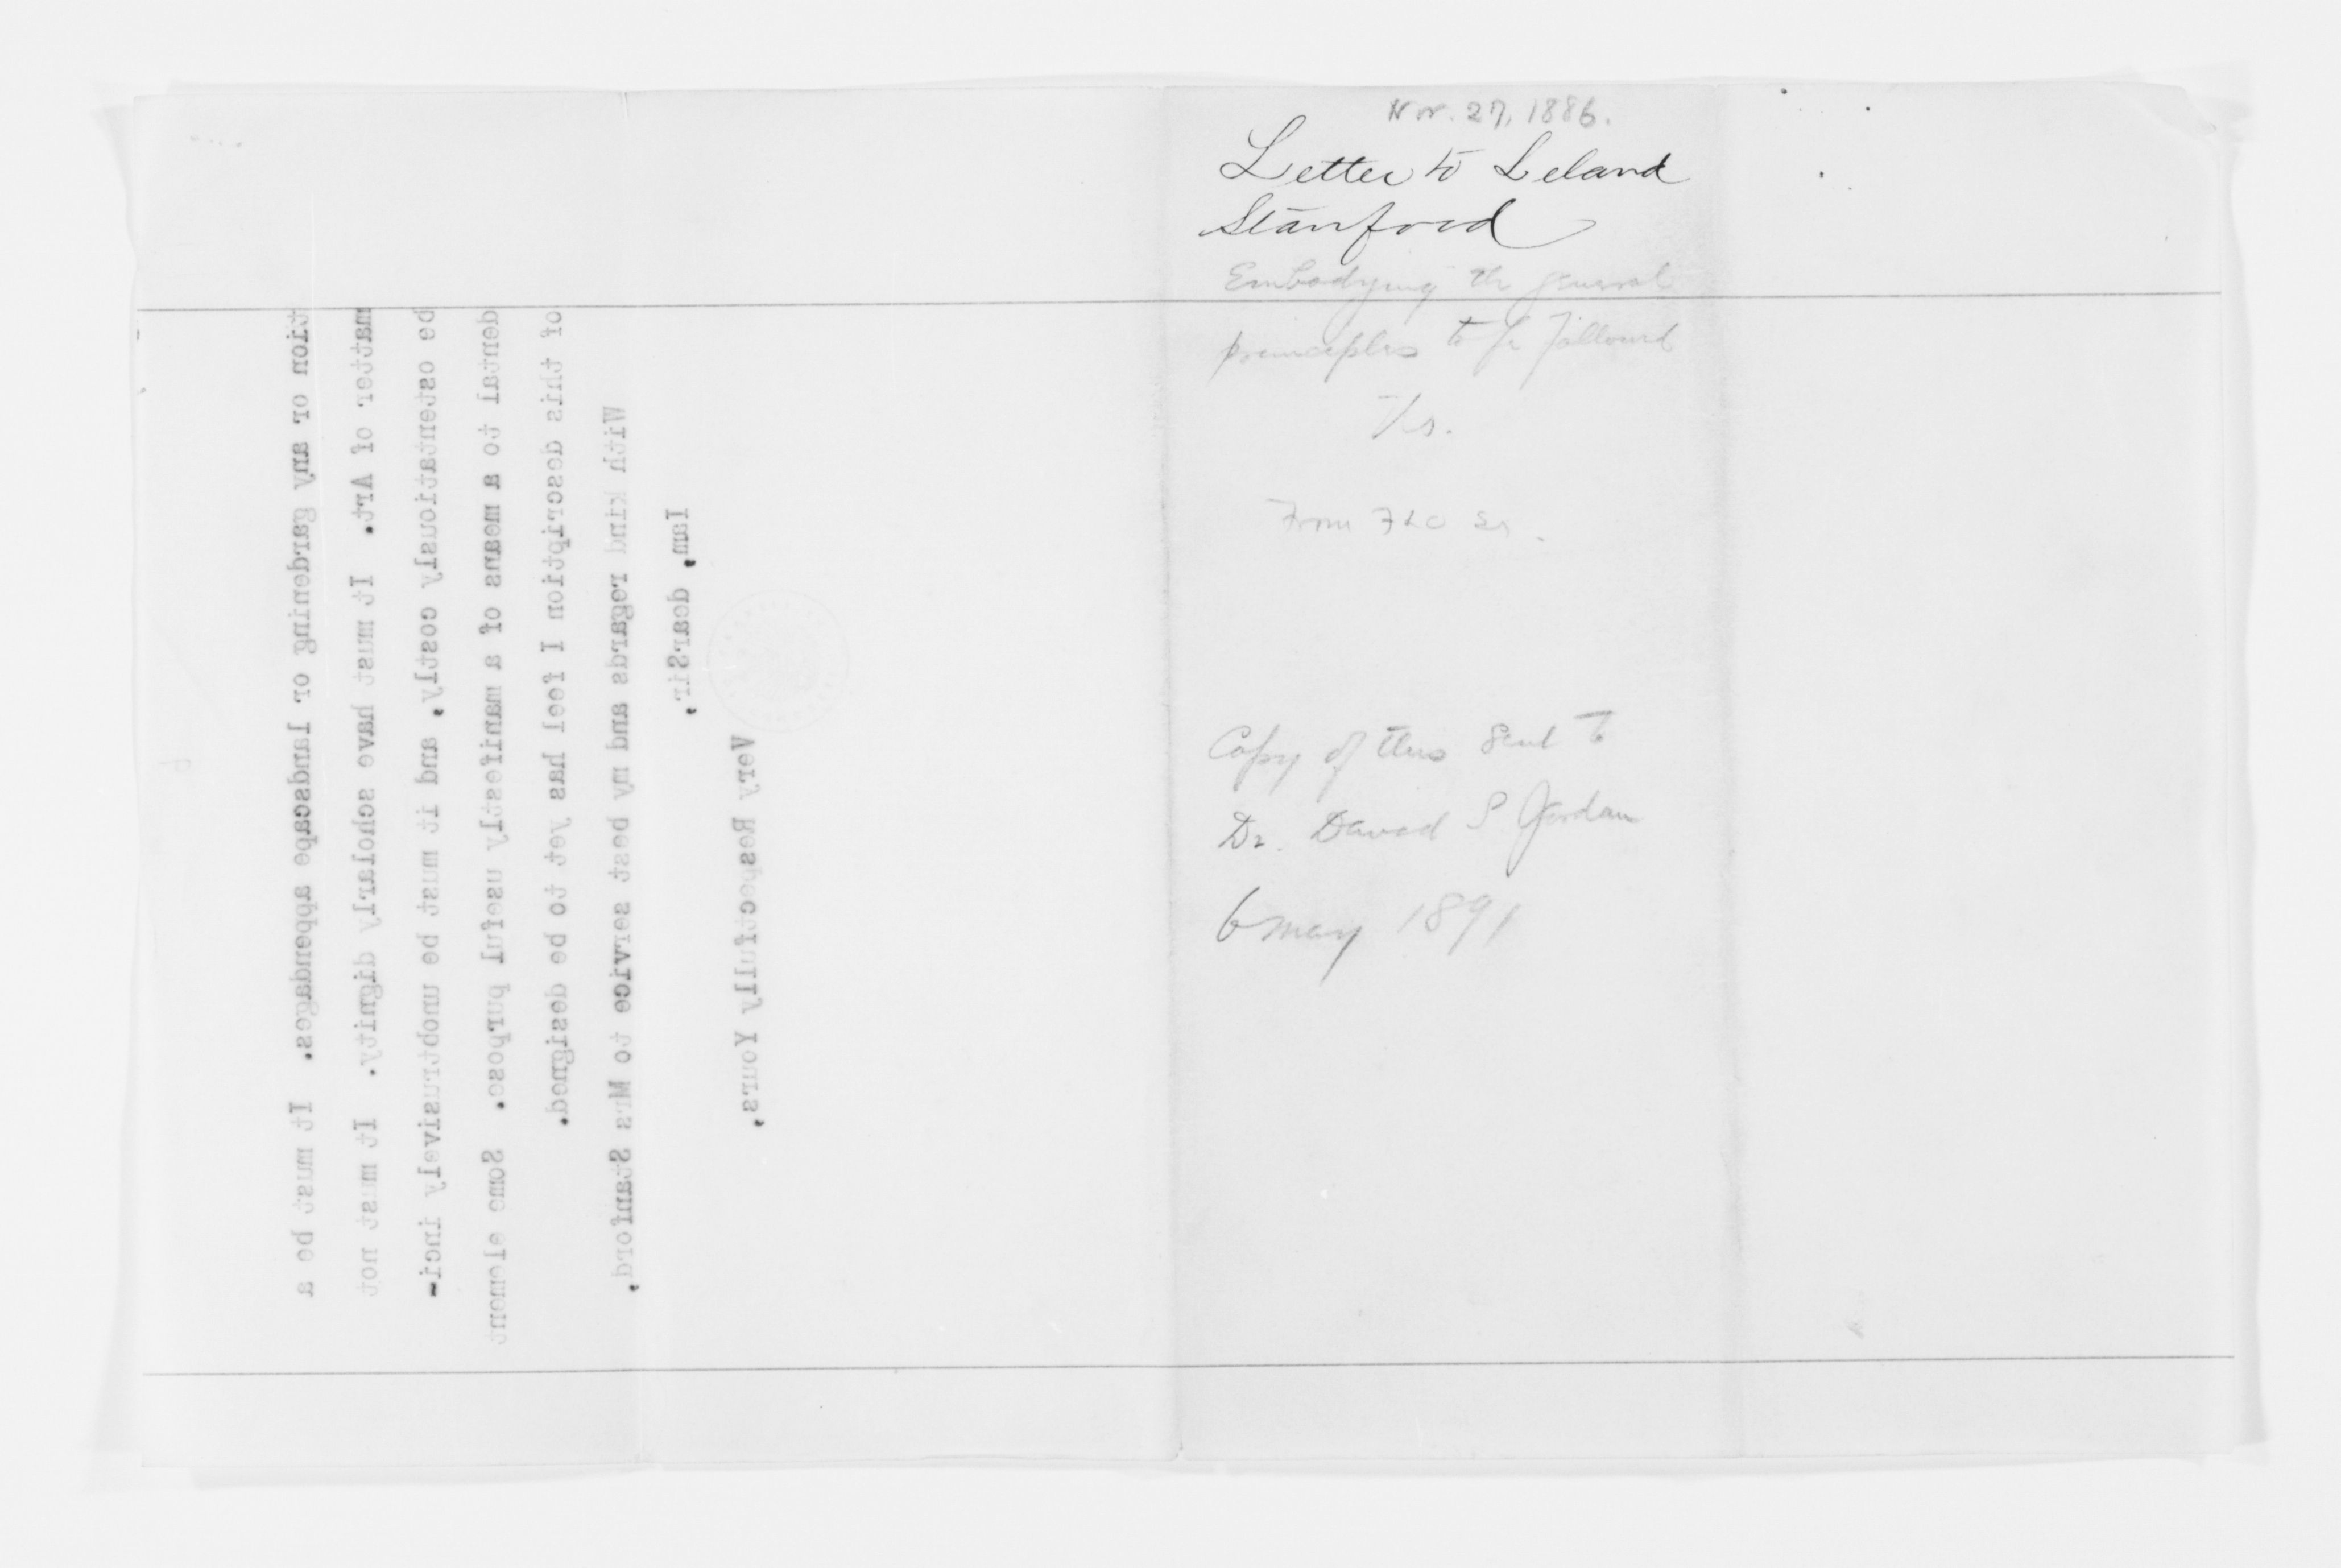 Nov. 27, 1886.
Letter to Leland
Stanford
Embodying the general
principles to be followed
From FLO Sr.
Copy of this sent to
Dr. David S Jordan
6 May 1891
tion or any gardening or landscape appendages. It must be a
matter of Art. It must have scholarly dignity. It must not
be ostentatiously costly, and it must be unobtrusively inci-
dental to a means of a manifestly useful purpose. Some element
of this description I feel has yet to be designed.
With kind regards and my best service to Mrs Stanford,
Iam, dearSir,
Very Respectfully Yours,